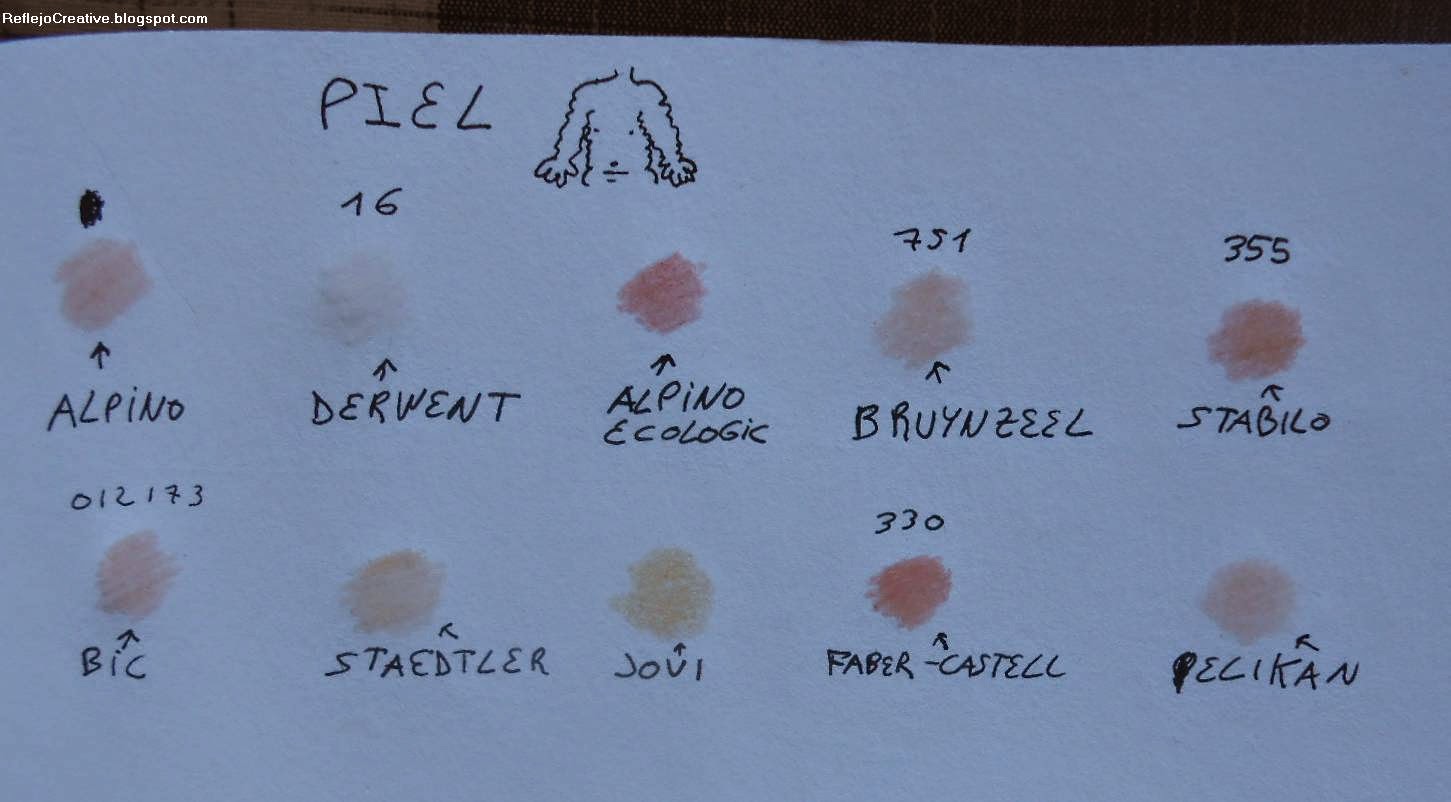 ReflejoCreative.blogspot.com
PIEL
16
751
355
ALPiNO
DERWENT
ALPiNO
ECOLOGIC
BRUYNZEEL
STABILO
012173
330
BiC
STAEDTLER
JOVI
FABER-CASTELL
PELIKAN